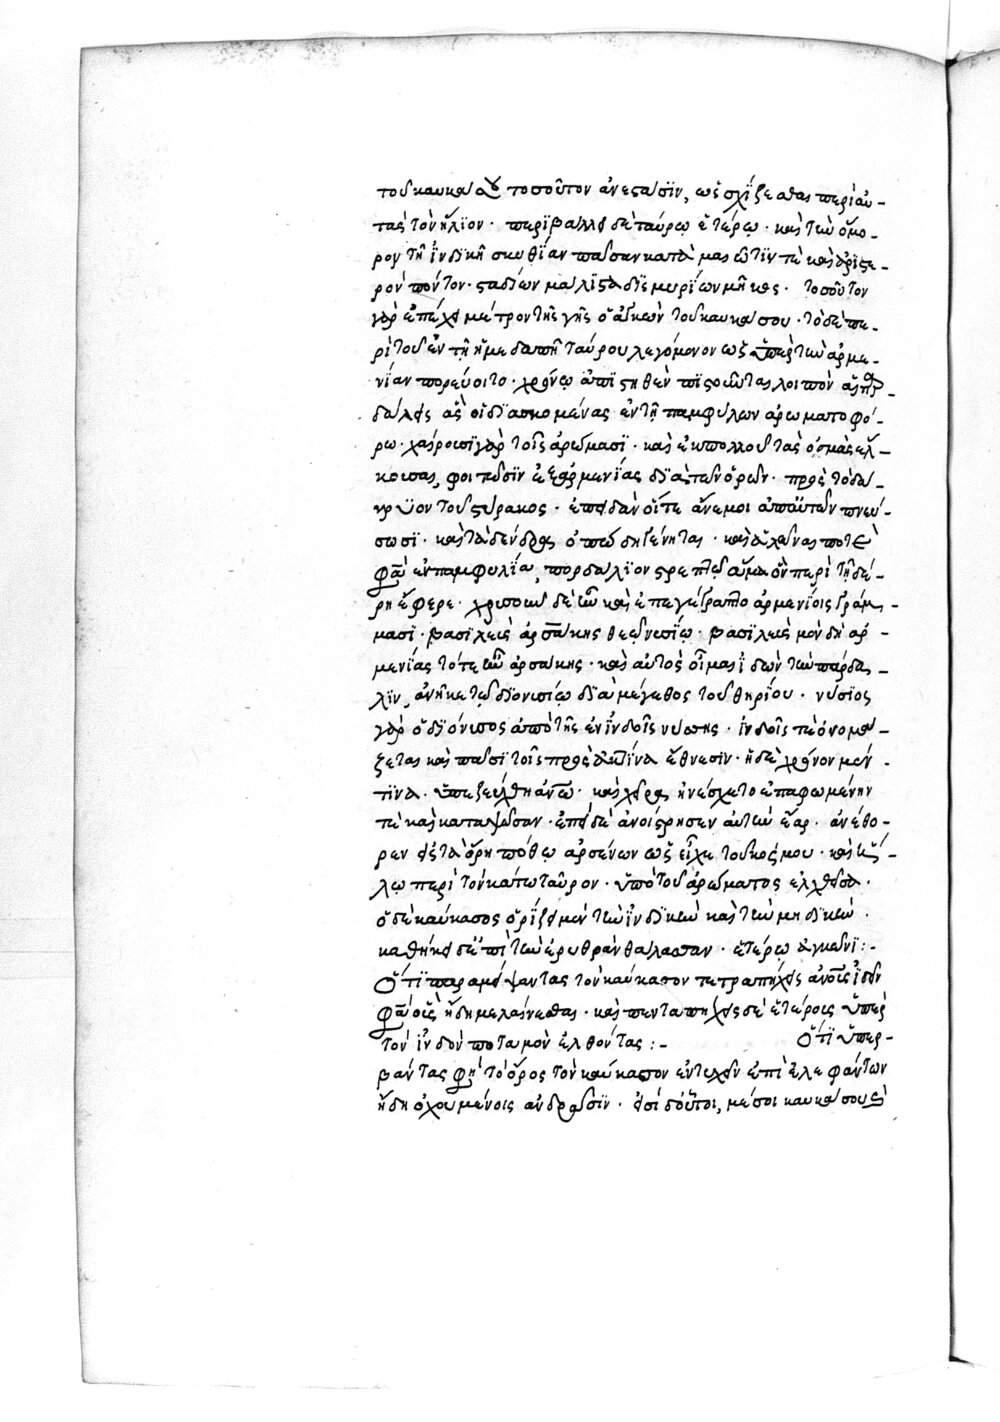 τοῦ καυκάσου τοσοῦτον ἀνεστᾶσϊν, ὡς σχΐζεσθαι περὶ αὐ-
τὰς τὸν ἥλϊον · περϊβάλλει δὲ ταύρω ἑτέρω · καὶ τὴν ὅμο-
ρον τῆ ἰνδϊκῆ σκυθίαν πᾶσαν κατὰ μαιῶτϊν τὲ καὶ ἀρϊστε-
ρὸν πόντον · σταδίων μάλϊστα δϊσμυρίων μῆκος · τοσοῦτον
γὰρ ἐπέχει μέτρον τῆς γῆς ὁ ἀγκὼν τοῦ καυκάσου · τὸ δὲ πε-
ρὶ τοῦ ἐν τῆ ἡμεδαπῆ ταύρου λεγόμενον ὡς ὑπὲρ τὴν ἀρμε-
νΐαν πορεύοιτο · χρόνω ἀπϊστηθὲν πϊστοῦνται λοιπὸν αἱ παρ-
δάλεις ἃς οἶδϊα ἁλισκομένας ἐν τῆ παμφύλων ἀρωματοφό-
ρω · χαίρουσϊ γὰρ τοῖς ἀρώμασϊ · καὶ ἐκ πολλοῦ τὰς ὀσμὰς ἕλ-
κουσαι, φοιτῶσϊν ἐξ ἀρμενΐας δϊὰ τῶν ὀρῶν · πρὸς τὸ δά-
κρϋον τοῦ στύρακος · ἐπειδὰν οἵ τε ἄνεμοι ἀπ' αὐτῶν πνεύ-
σωσϊ · καὶ τὰ δένδρα ὀπώδη γένηται · καὶ ἁλῶναί ποτέ
φασιν ἐν παμφυλία, πόρδαλϊν στρεπτῶ ἅμα ὃν περὶ τῆ δέ-
ρη ἔφερε · χρυσοῦς δὲ ἦν καὶ ἐπεγέγραπτο ἀρμενΐοις γράμ-
μασϊ · βασϊλεὺς ἀρσάκης θεῶ νυσΐω · βασϊλεὺς μὲν δὴ ἀρ-
μενίας τότε ἦν ἀρσάκης · καὶ αὐτὸς οἶμαι ἰδὼν τὴν πάρδα-
λϊν, ἀνῆκε τῶ δϊονυσίω δϊὰ μέγεθος τοῦ θηρίου · νύσϊος
γὰρ ὁ δϊόνυσος ἀπὸ τῆς ἐν ἰνδοῖς νύσης · ἰνδοῖς τὲ ὀνομά-
ζεται καὶ πᾶσϊ τοῖς πρὸς ἀκτῖνα ἔθνεσϊν · ἡ δὲ χρόνον μέν
τϊνα · ὑπεζεύχθη ἀνθρώπω · καὶ χεῖρα ἠνέσχετο ἐπαφωμένην
τὲ καὶ καταψῶσαν · ἐπεὶ δὲ ἀνοίστρησεν αὐτὴν ἔαρ · ἀνέθο-
ρεν ἐς τὰ ὄρη πόθω ἀρσένων ὡς εἶχε τοῦ κόσμου · καὶ ἑά-
λω περὶ τὸν κάτω ταῦρον · ὑπὸ τοῦ ἀρώματος ἑλχθεῖσα ·
ὁ δὲ καύκασος ὁρΐζει μὲν τὴν ἰνδϊκὴν καὶ τὴν μηδϊκὴν ·
καθήκει δὲ ἐπὶ τὴν ἐρυθρὰν θάλασσαν · ἑτέρω ἀγκῶνϊ :-
Ὅτϊ παραμείψαντας τὸν καύκασον τετραπήχεις ἀνθρώπους ἰδεῖν
φασιν οὓς ἤδη μελαίνεσθαι · καὶ πενταπήχεις δὲ ἑτέρους ὑπὲρ
τὸν ἰνδὸν ποταμὸν ἐλθόντας :- Ὅτϊ ὑπερ-
βάντας φησὶ τὸ ὄρος τὸν καύκασον ἐντυχεῖν ἐπὶ ἐλεφάντων
ἤδη ὀχουμένοις ἀνδράσϊν · εἰσὶ δ' οὗτοι, μέσοι καυκάσου καὶ